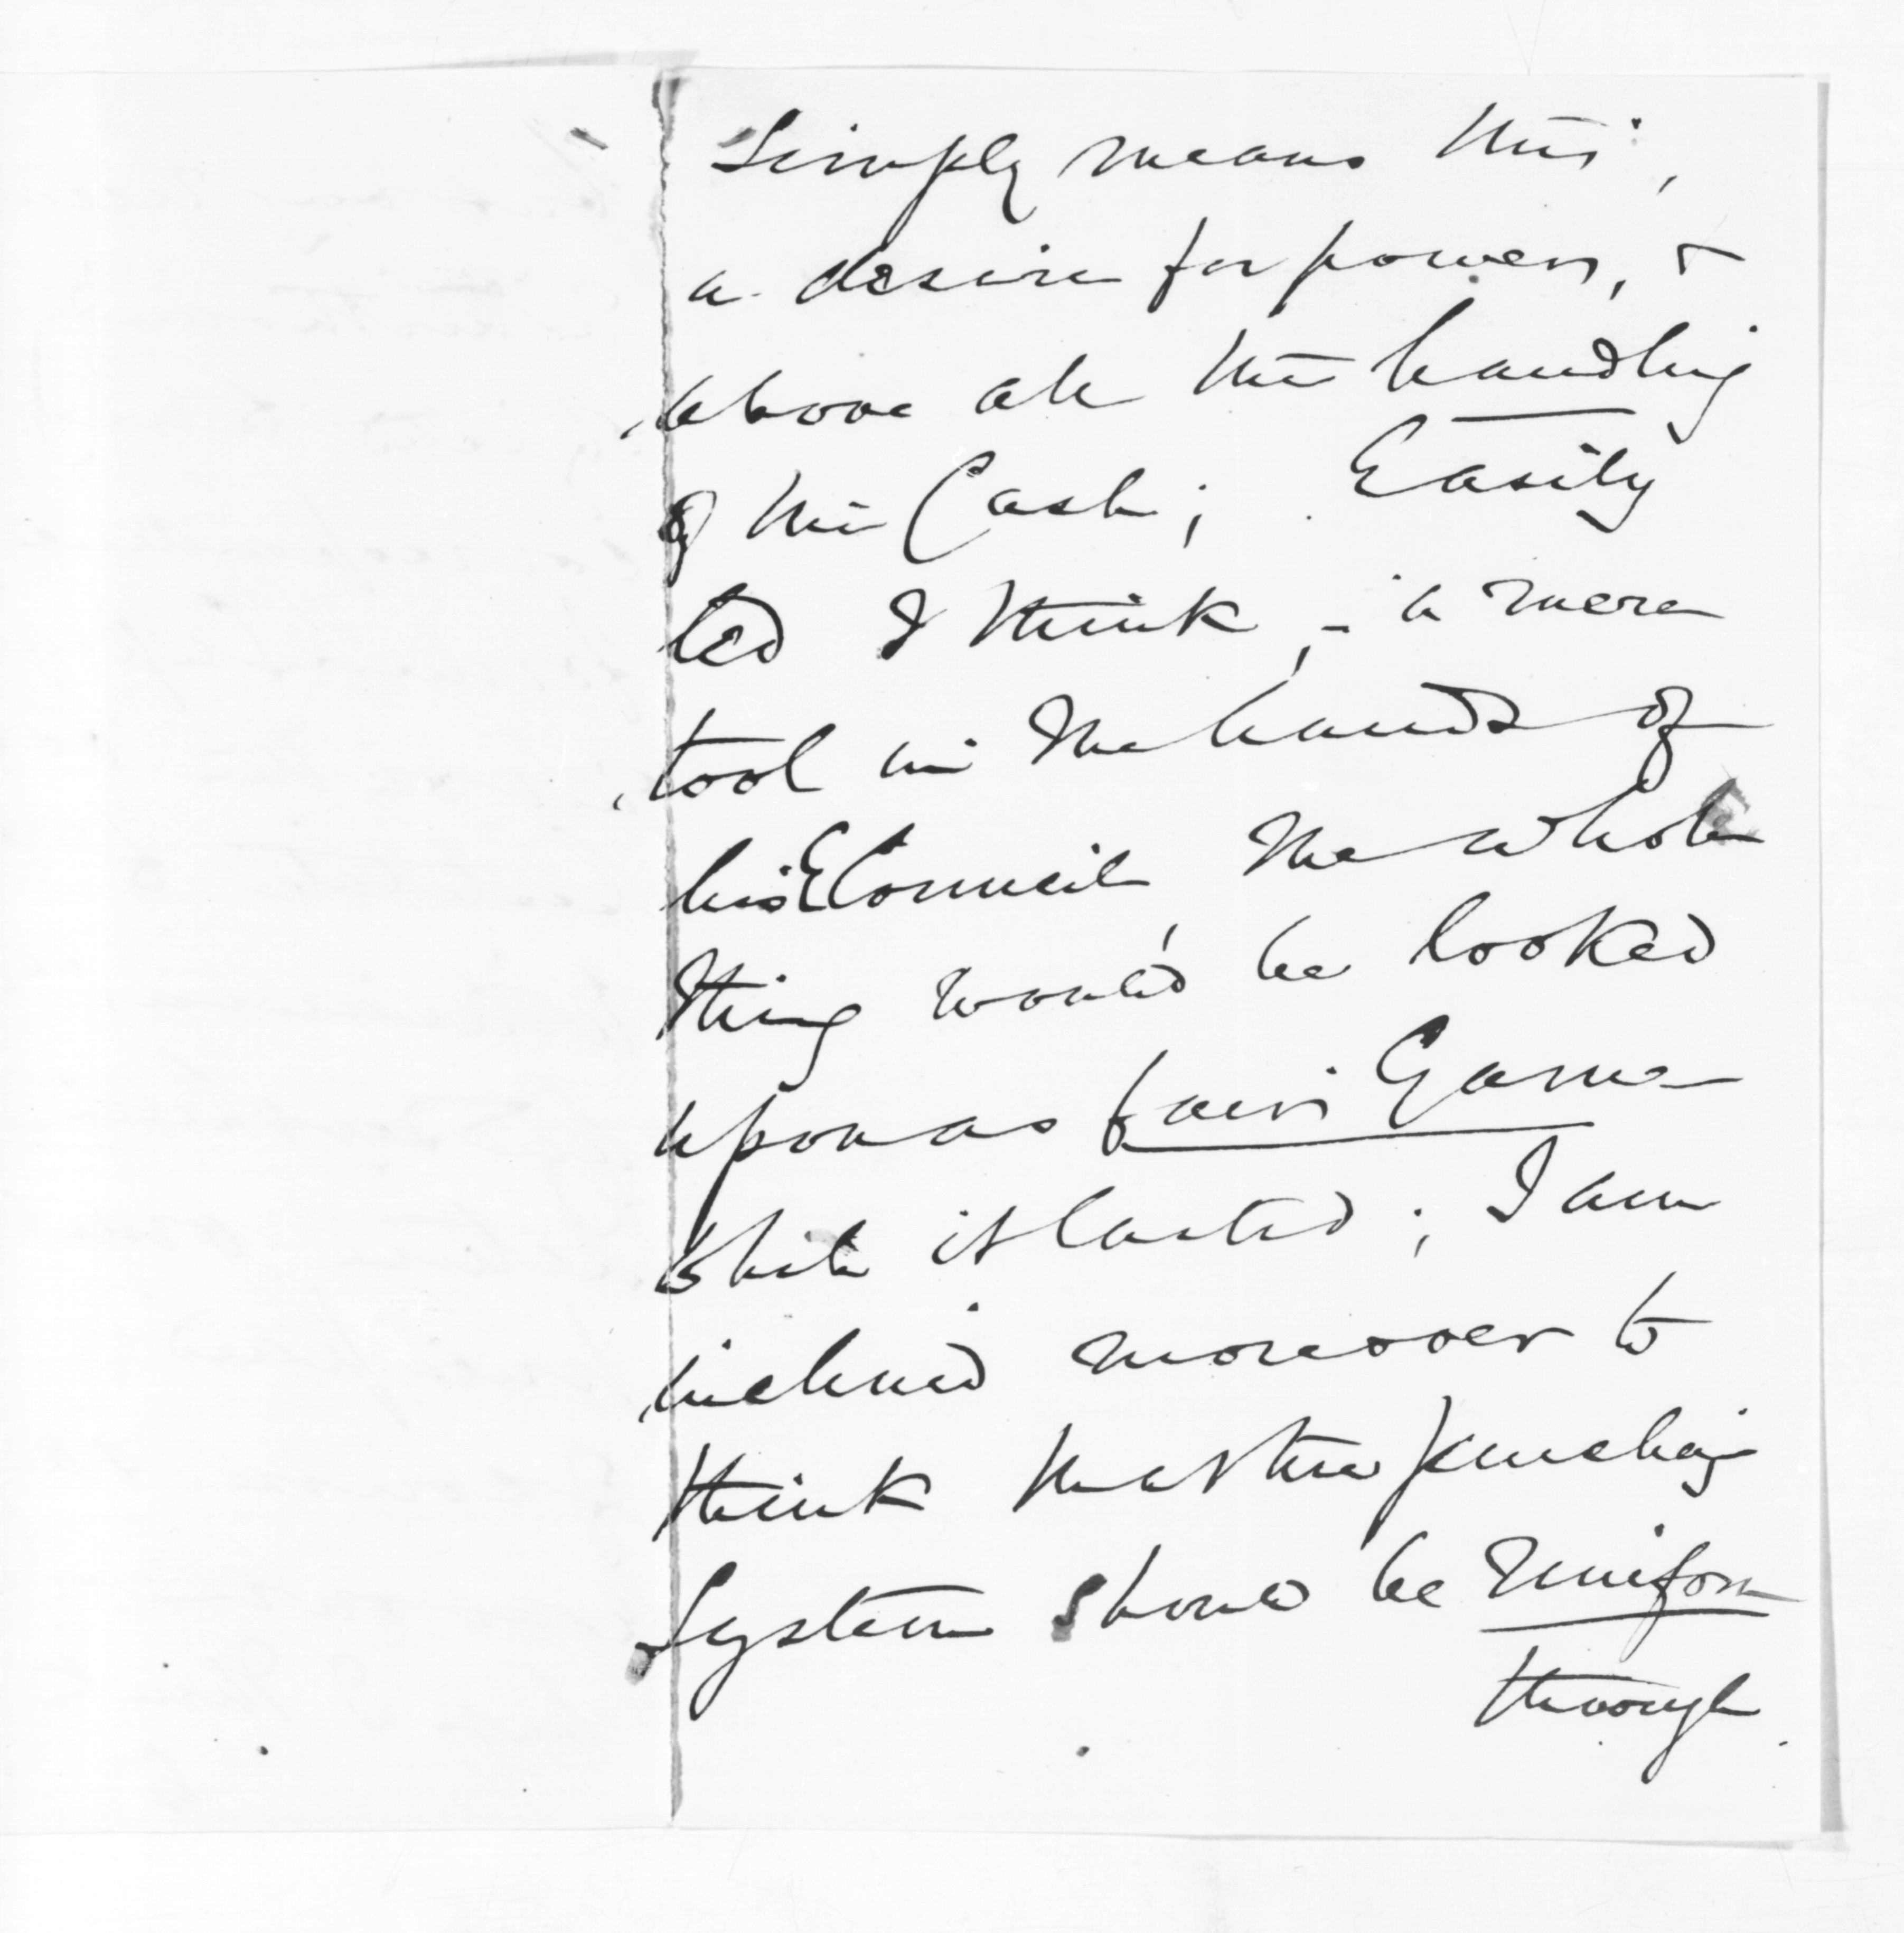 Simply means this,
a desire for power, &
above all the handling
of the Cash; Easily
led I think, - a mere
tool in the hands of
his E Council, The whole
thing would be looked
upon as fair Game
while it lasted; I am
inclined moreover to
think that the
System should be Uniform
through